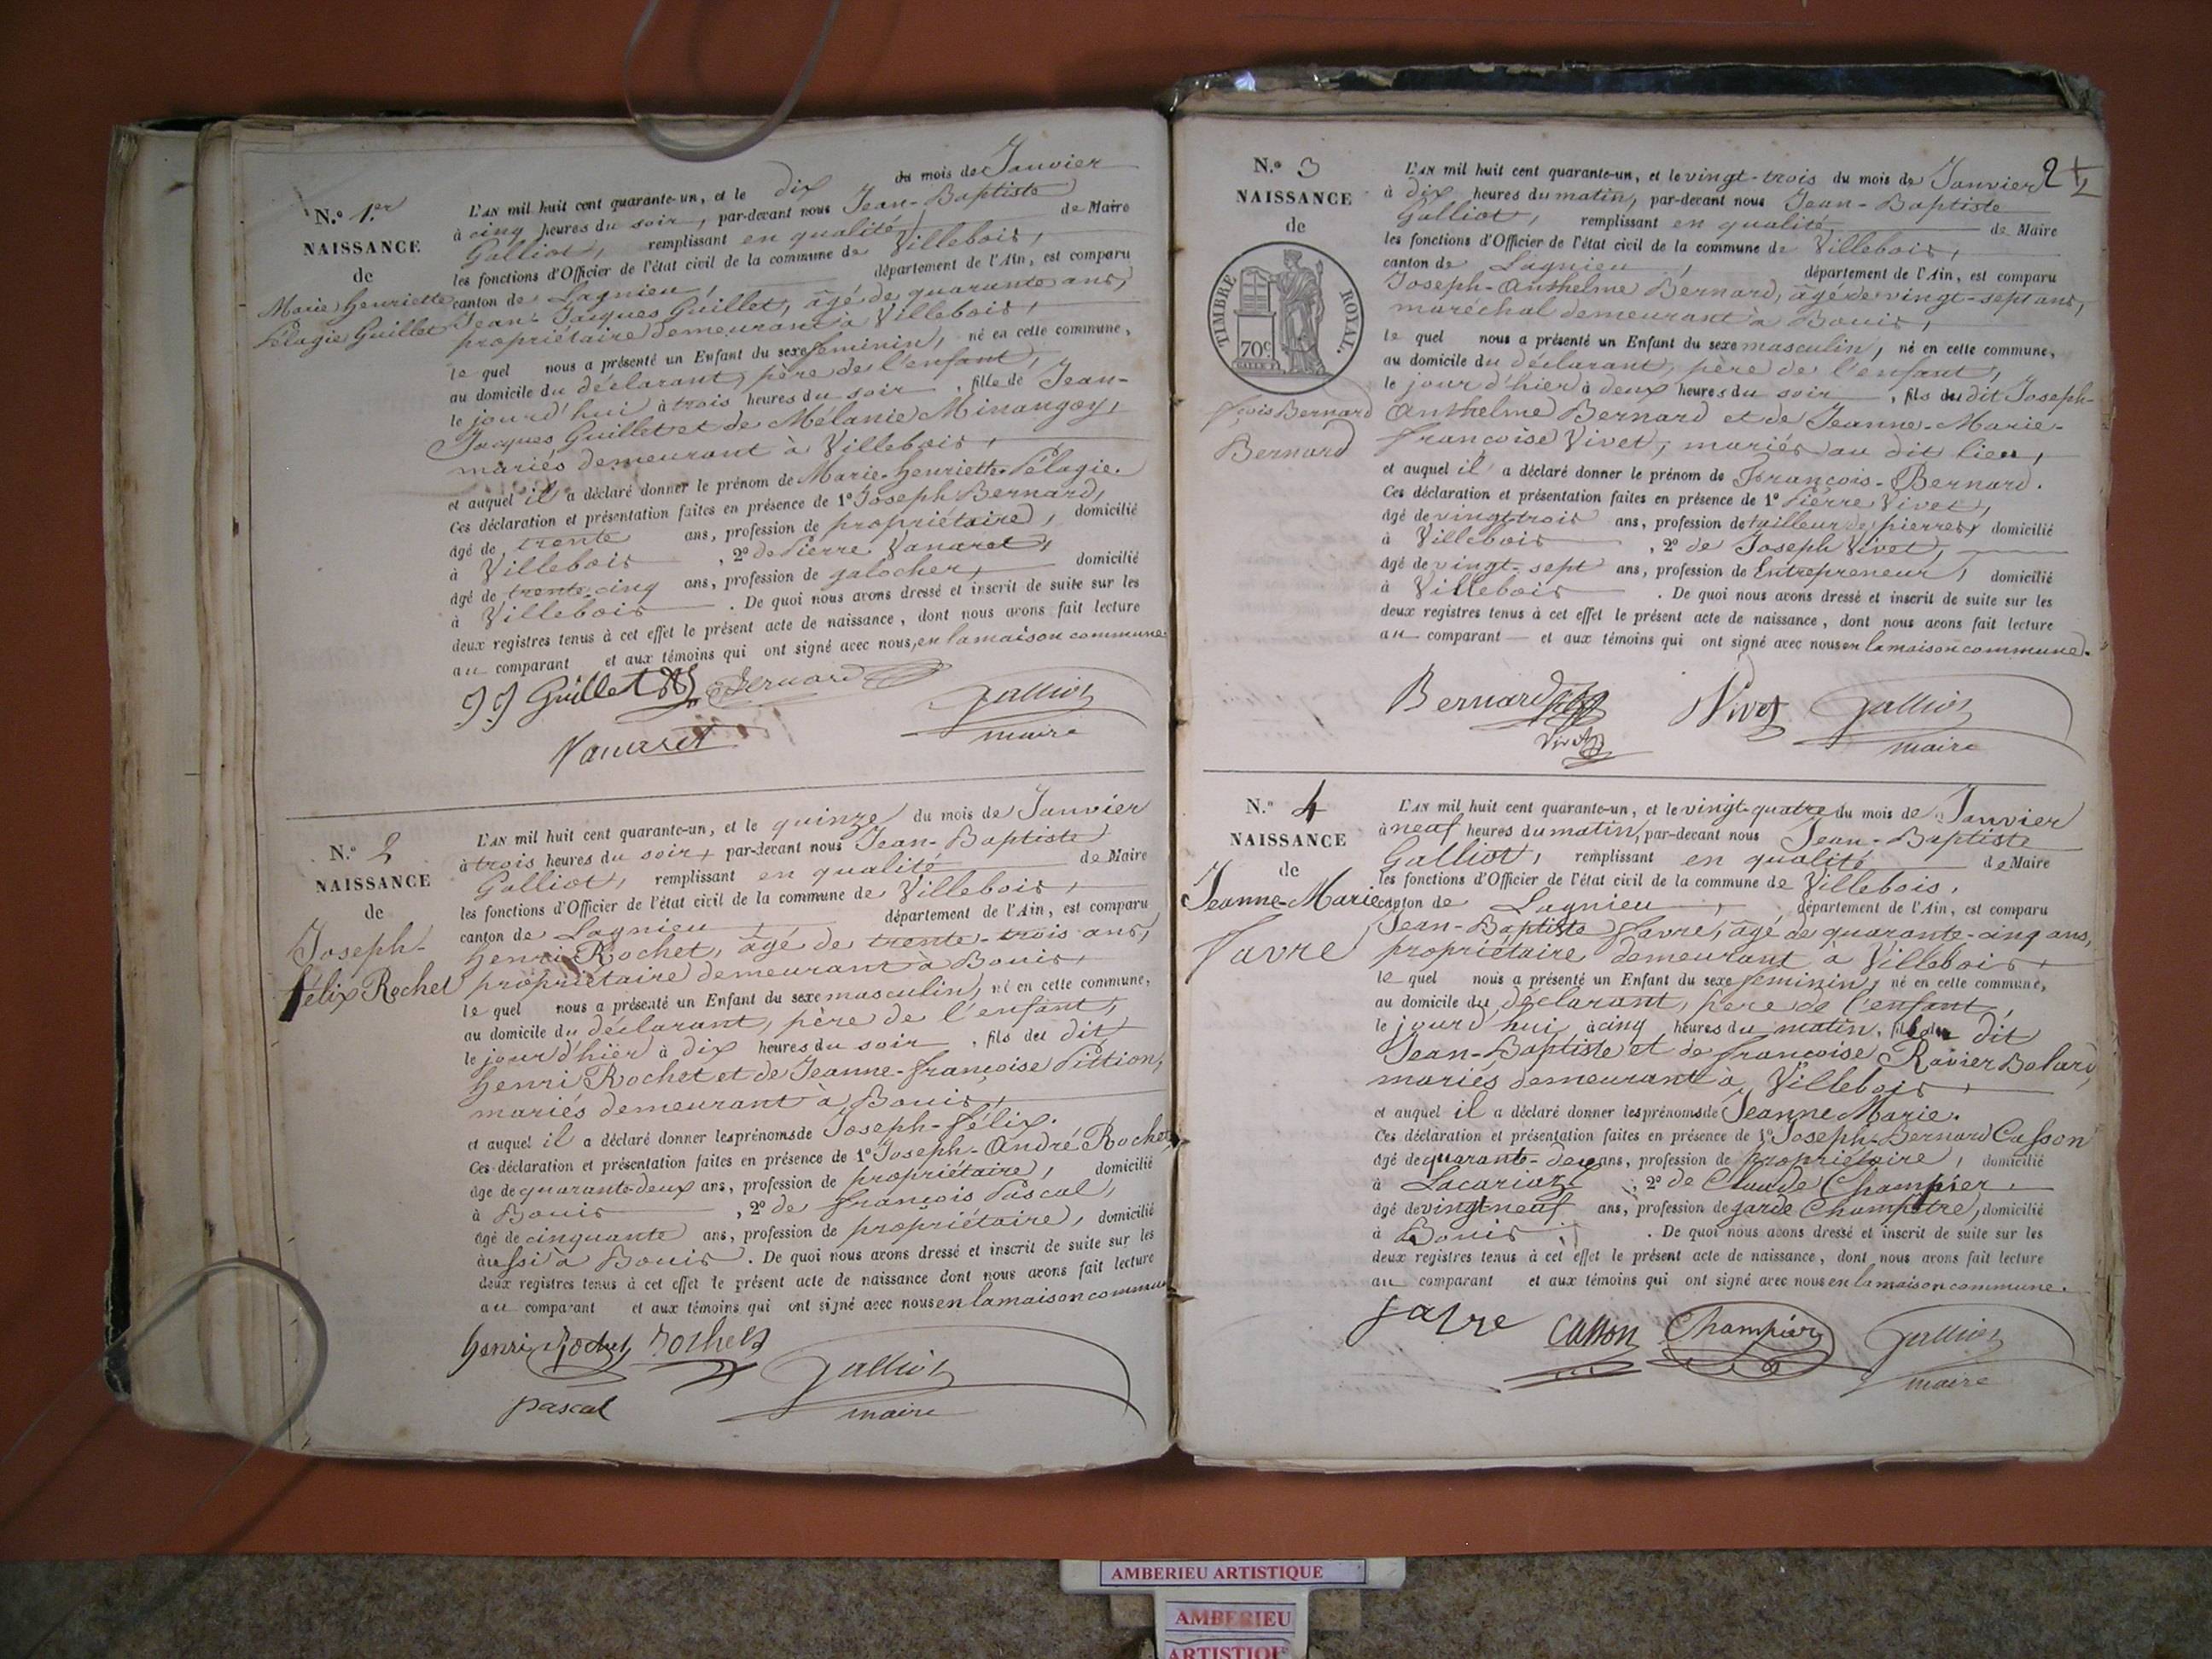 N.º 1.er
NAISSANCE
de
Marie Henriette
Pélagie Guillet
L'AN mil huit cent quarante-un, et le dix du mois de Janvier
à cinq heures du soir, par-devant nous Jean-Baptiste
Galliot, remplissant en qualité de Maire
les fonctions d'Officier de l'état civil de la commune de Villebois,
canton de Lagnieu, département de l'Ain, est comparu
Jean-Jacques Guillet, âgé de quarante ans,
propriétaire demeurant à Villebois,
le quel nous a présenté un Enfant du sexe feminin, né en cette commune,
au domicile du déclarant, père de l'enfant,
le jourd'hui à trois heures du soir, fille de Jean-
Jacques Guillet et de Mélanie Minangoy,
mariés demeurant à Villebois,
et auquel il a déclaré donner le prénom de Marie-Henriette-Pélagie.
Ces déclaration et présentation faites en présence de 1º Joseph Bernard,
âgé de trente ans, profession de propriétaire, domicilié
à Villebois, 2º de Pierre Vanaret,
âgé de trente-cinq ans, profession de galocher, domicilié
à Villebois. De quoi nous avons dressé et inscrit de suite sur les
deux registres tenus à cet effet le présent acte de naissance, dont nous avons fait lecture
au comparant et aux témoins qui ont signé avec nous, en la maison commune.
JJ Guillet Bernard
Galliot
maire
Vanaret
N.º 2
NAISSANCE
de
Joseph-
félix Rochet
L'AN mil huit cent quarante-un, et le quinze du mois de Janvier
à trois heures du soir, par-devant nous Jean-Baptiste
Galliot, remplissant en qualité de Maire
les fonctions d'Officier de l'état civil de la commune de Villebois,
canton de Lagnieu, département de l'Ain, est comparu
Henri Rochet, âgé de trente-trois ans,
propriétaire demeurant à Bouis,
le quel nous a présenté un Enfant du sexe masculin, né en cette commune,
au domicile du déclarant, père de l'enfant,
le jour d'hier à dix heures du soir, fils du dit
Henri Rochet et de Jeanne-françoise Pittion,
mariés demeurant à Bouis,
et auquel il a déclaré donner les prénoms de Joseph-félix.
Ces déclaration et présentation faites en présence de 1º Joseph-André Rochet,
âgé de quarante-deux ans, profession de propriétaire, domicilié
à Bouis, 2º de françois Pascal,
âgé de cinquante ans, profession de propriétaire, domicilié
aussi à Bouis. De quoi nous avons dressé et inscrit de suite sur les
deux registres tenus à cet effet le présent acte de naissance dont nous avons fait lecture
au comparant et aux témoins qui ont signé avec nous en la maison commune
henri Rochet Rochet
Galliot
pascal
maire
2
N.º 3
NAISSANCE
de
TIMBRE ROYAL.
70c
fçois Bernard
Bernard
L'AN mil huit cent quarante-un, et le vingt-trois du mois de Janvier
à dix heures du matin, par-devant nous Jean-Baptiste
Galliot, remplissant en qualité de Maire
les fonctions d'Officier de l'état civil de la commune de Villebois,
canton de Lagnieu, département de l'Ain, est comparu
Joseph-Anthelme Bernard, âgé de vingt-sept ans,
maréchal demeurant à Bouis,
le quel nous a présenté un Enfant du sexe masculin, né en cette commune,
au domicile du déclarant, père de l'enfant,
le jour d'hier à deux heures du soir, fils du dit Joseph-
Anthelme Bernard et de Jeanne-Marie-
françoise Vivet, mariés au dit lieu,
et auquel il a déclaré donner le prénom de François-Bernard.
Ces déclaration et présentation faites en présence de 1º Pierre Vivet,
âgé de vingt-trois ans, profession de tailleur de pierres, domicilié
à Villebois, 2º de Joseph Vivet,
âgé de vingt-sept ans, profession de Entrepreneur, domicilié
à Villebois. De quoi nous avons dressé et inscrit de suite sur les
deux registres tenus à cet effet le présent acte de naissance, dont nous avons fait lecture
au comparant et aux témoins qui ont signé avec nous en la maison commune.
Bernard Vivet Galliot
Vivet maire
N.º 4
NAISSANCE
de
Jeanne-Marie
Favre
L'AN mil huit cent quarante-un, et le vingt-quatre du mois de Janvier
à neuf heures du matin, par-devant nous Jean-Baptiste
Galliot, remplissant en qualité de Maire
les fonctions d'Officier de l'état civil de la commune de Villebois,
canton de Lagnieu, département de l'Ain, est comparu
Jean-Baptiste Favre, âgé de quarante-cinq ans,
propriétaire demeurant à Villebois,
le quel nous a présenté un Enfant du sexe feminin, né en cette commune,
au domicile du déclarant, père de l'enfant,
le jourd'hui à cinq heures du matin, fille du dit
Jean-Baptiste et de françoise Ravier Bolard,
mariés demeurant à Villebois,
et auquel il a déclaré donner les prénoms de Jeanne Marie.
Ces déclaration et présentation faites en présence de 1º Joseph-Bernard Casson
âgé de quarante-deux ans, profession de propriétaire, domicilié
à Lacariaz, 2º de Claude Champier,
âgé de vingt neuf ans, profession de garde Champêtre, domicilié
à Bouis. De quoi nous avons dressé et inscrit de suite sur les
deux registres tenus à cet effet le présent acte de naissance, dont nous avons fait lecture
au comparant et aux témoins qui ont signé avec nous en la maison commune.
favre Casson Champier Galliot
maire
AMBERIEU ARTISTIQUE
AMBERIEU
ARTISTIQUE